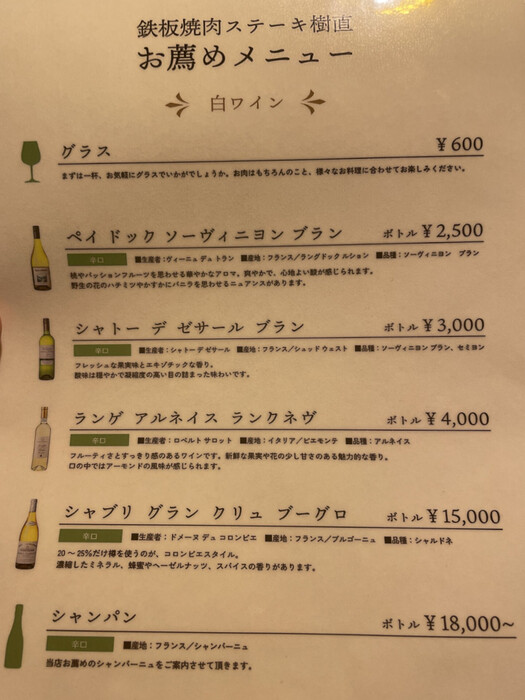 鉄板焼肉ステーキ樹直
お薦めメニュー
白ワイン
グラス ¥600
まずは一杯、お気軽にグラスでいかがでしょうか。お肉はもちろんのこと、様々なお料理に合わせてお楽しみください。
ペイ ドック ソーヴィニヨン ブラン ボトル ¥2,500
辛口 ■生産者：ヴィーニュ デュ トラン ■産地：フランス／ラングドック ルション ■品種：ソーヴィニヨン ブラン
桃やパッションフルーツを思わせる華やかなアロマ。爽やかで、心地よい酸が感じられます。
野生の花のハチミツやかすかにバニラを思わせるニュアンスがあります。
シャトー デ ゼサール ブラン ボトル ¥3,000
辛口 ■生産者：シャトー デ ゼサール ■産地：フランス／シュッド ウェスト ■品種：ソーヴィニヨン ブラン、セミヨン
フレッシュな果実味とエキゾチックな香り。
酸味は穏やかで凝縮度の高い目の詰まった味わいです。
ランゲ アルネイス ランクネヴ ボトル ¥4,000
辛口 ■生産者：ロベルト サロット ■産地：イタリア／ピエモンテ ■品種：アルネイス
フルーティさとすっきり感のあるワインです。新鮮な果実や花の少し甘さのある魅力的な香り。
口の中ではアーモンドの風味が感じられます。
シャブリ グラン クリュ ブーグロ ボトル ¥15,000
辛口 ■生産者：ドメーヌ デュ コロンビエ ■産地：フランス／ブルゴーニュ ■品種：シャルドネ
20～25%だけ樽を使うのが、コロンビエスタイル。
濃縮したミネラル、蜂蜜やヘーゼルナッツ、スパイスの香りがあります。
シャンパン ボトル ¥18,000~
辛口 ■産地：フランス／シャンパーニュ
当店お薦めのシャンパーニュをご案内させて頂きます。